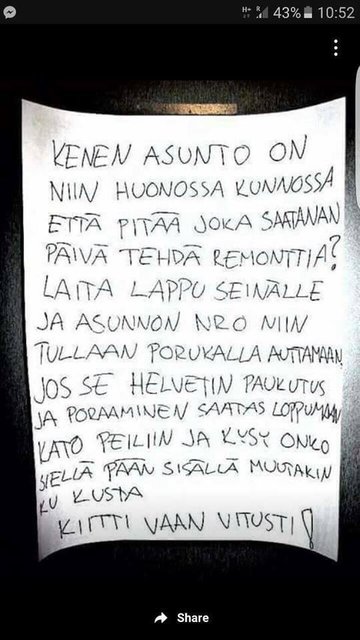 H+ R 43% 10:52
KENEN ASUNTO ON
NIIN HUONOSSA KUNNOSSA
ETTÄ PITÄÄ JOKA SAATANAN
PÄIVÄ TEHDÄ REMONTTIA?
LAITA LAPPU SEINÄLLE
JA ASUNNON NRO NIIN
TULLAAN PORUKALLA AUTTAMAAN,
JOS SE HELVETIN PAUKUTUS
JA PORAAMINEN SAATAS LOPPUMAAN
KATO PEILIIN JA KYSY ONKO
SIELLÄ PÄÄN SISÄLLÄ MUUTAKIN
KU KUSTA
KIITTI VAAN VITUSTI!
Share